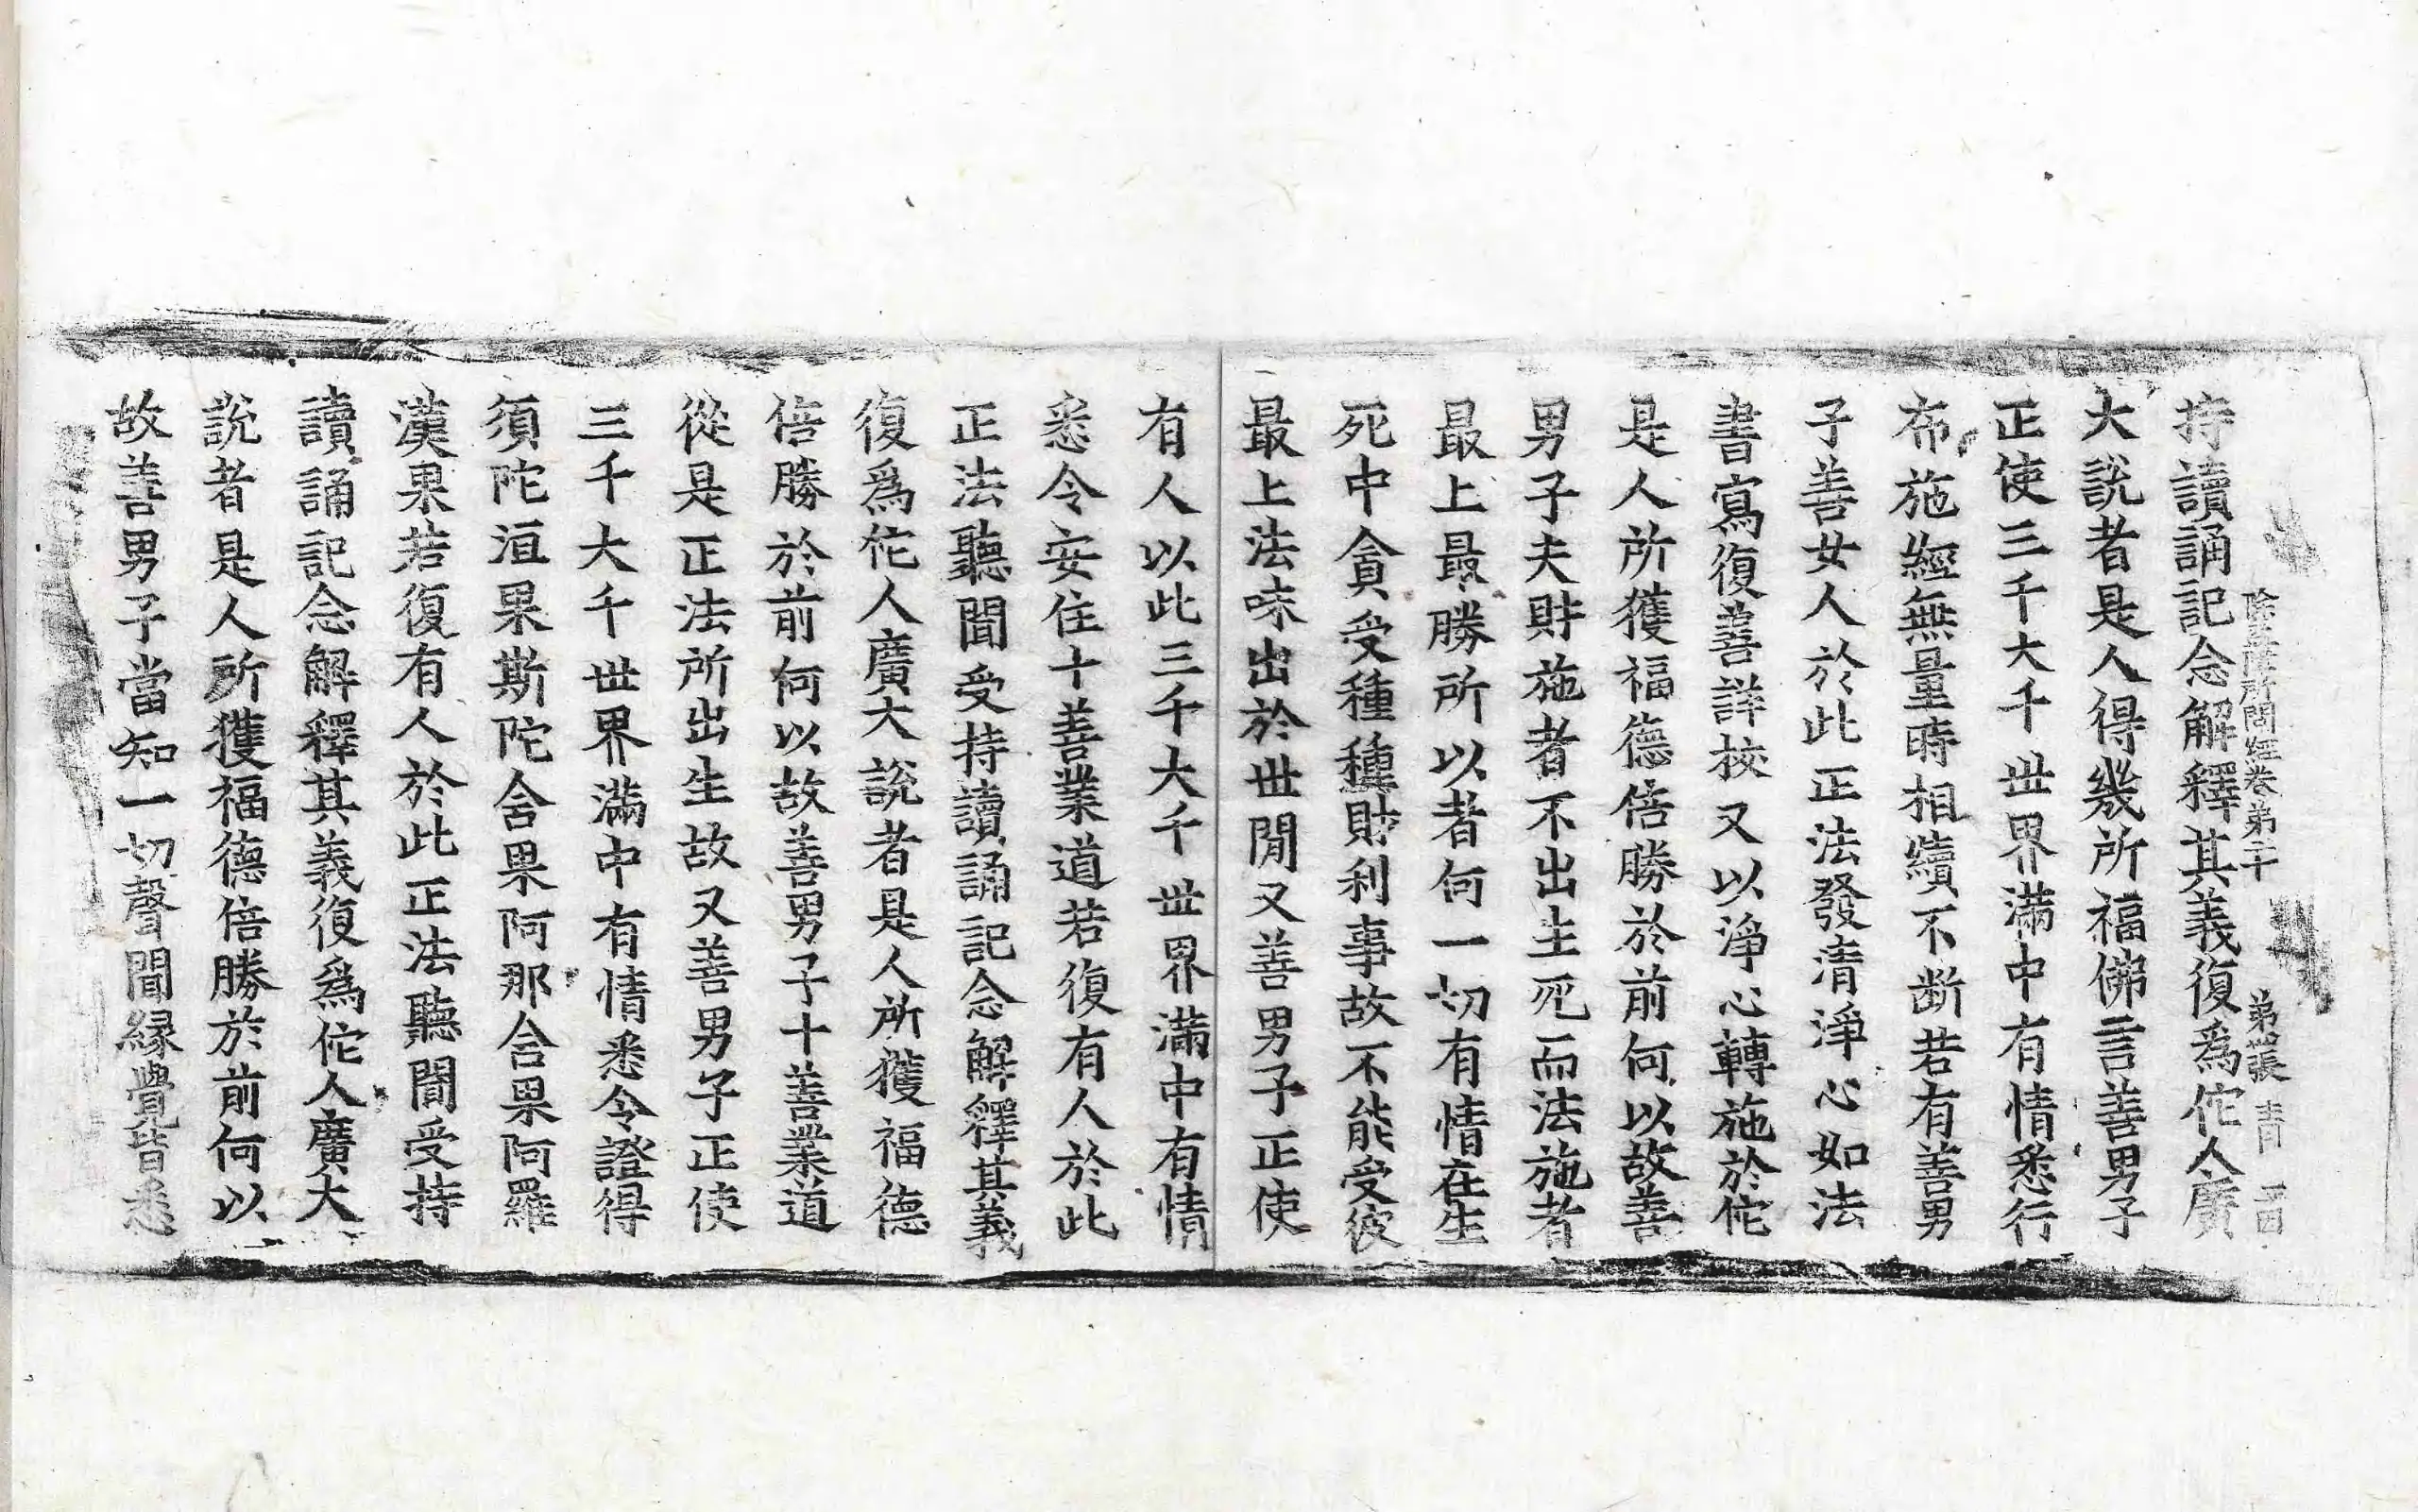 持讀誦記念解釋其義復爲佗人廣
除蓋障所問經卷第二十 第 張 青
大說者是人得幾所福佛言善男子
正使三千大千世界滿中有情悉行
布施經無量時相續不斷若有善男
子善女人於此正法發清淨心如法
書寫復善詳校又以淨心轉施於佗
是人所獲福德倍勝於前何以故善
男子夫財施者不出生死而法施者
最上最勝所以者何一切有情在生
死中貪受種種財利事故不能受彼
最上法味出於世閒又善男子正使
有人以此三千大千世界滿中有情
悉令安住十善業道若復有人於此
正法聽聞受持讀誦記念解釋其義
復爲佗人廣大說者是人所獲福德
倍勝於前何以故善男子十善業道
從是正法所出生故又善男子正使
三千大千世界滿中有情悉令證得
須陀洹果斯陀含果阿那含果阿羅
漢果若復有人於此正法聽聞受持
讀誦記念解釋其義復爲佗人廣大
說者是人所獲福德倍勝於前何以
故善男子當知一切聲聞緣覺皆悉